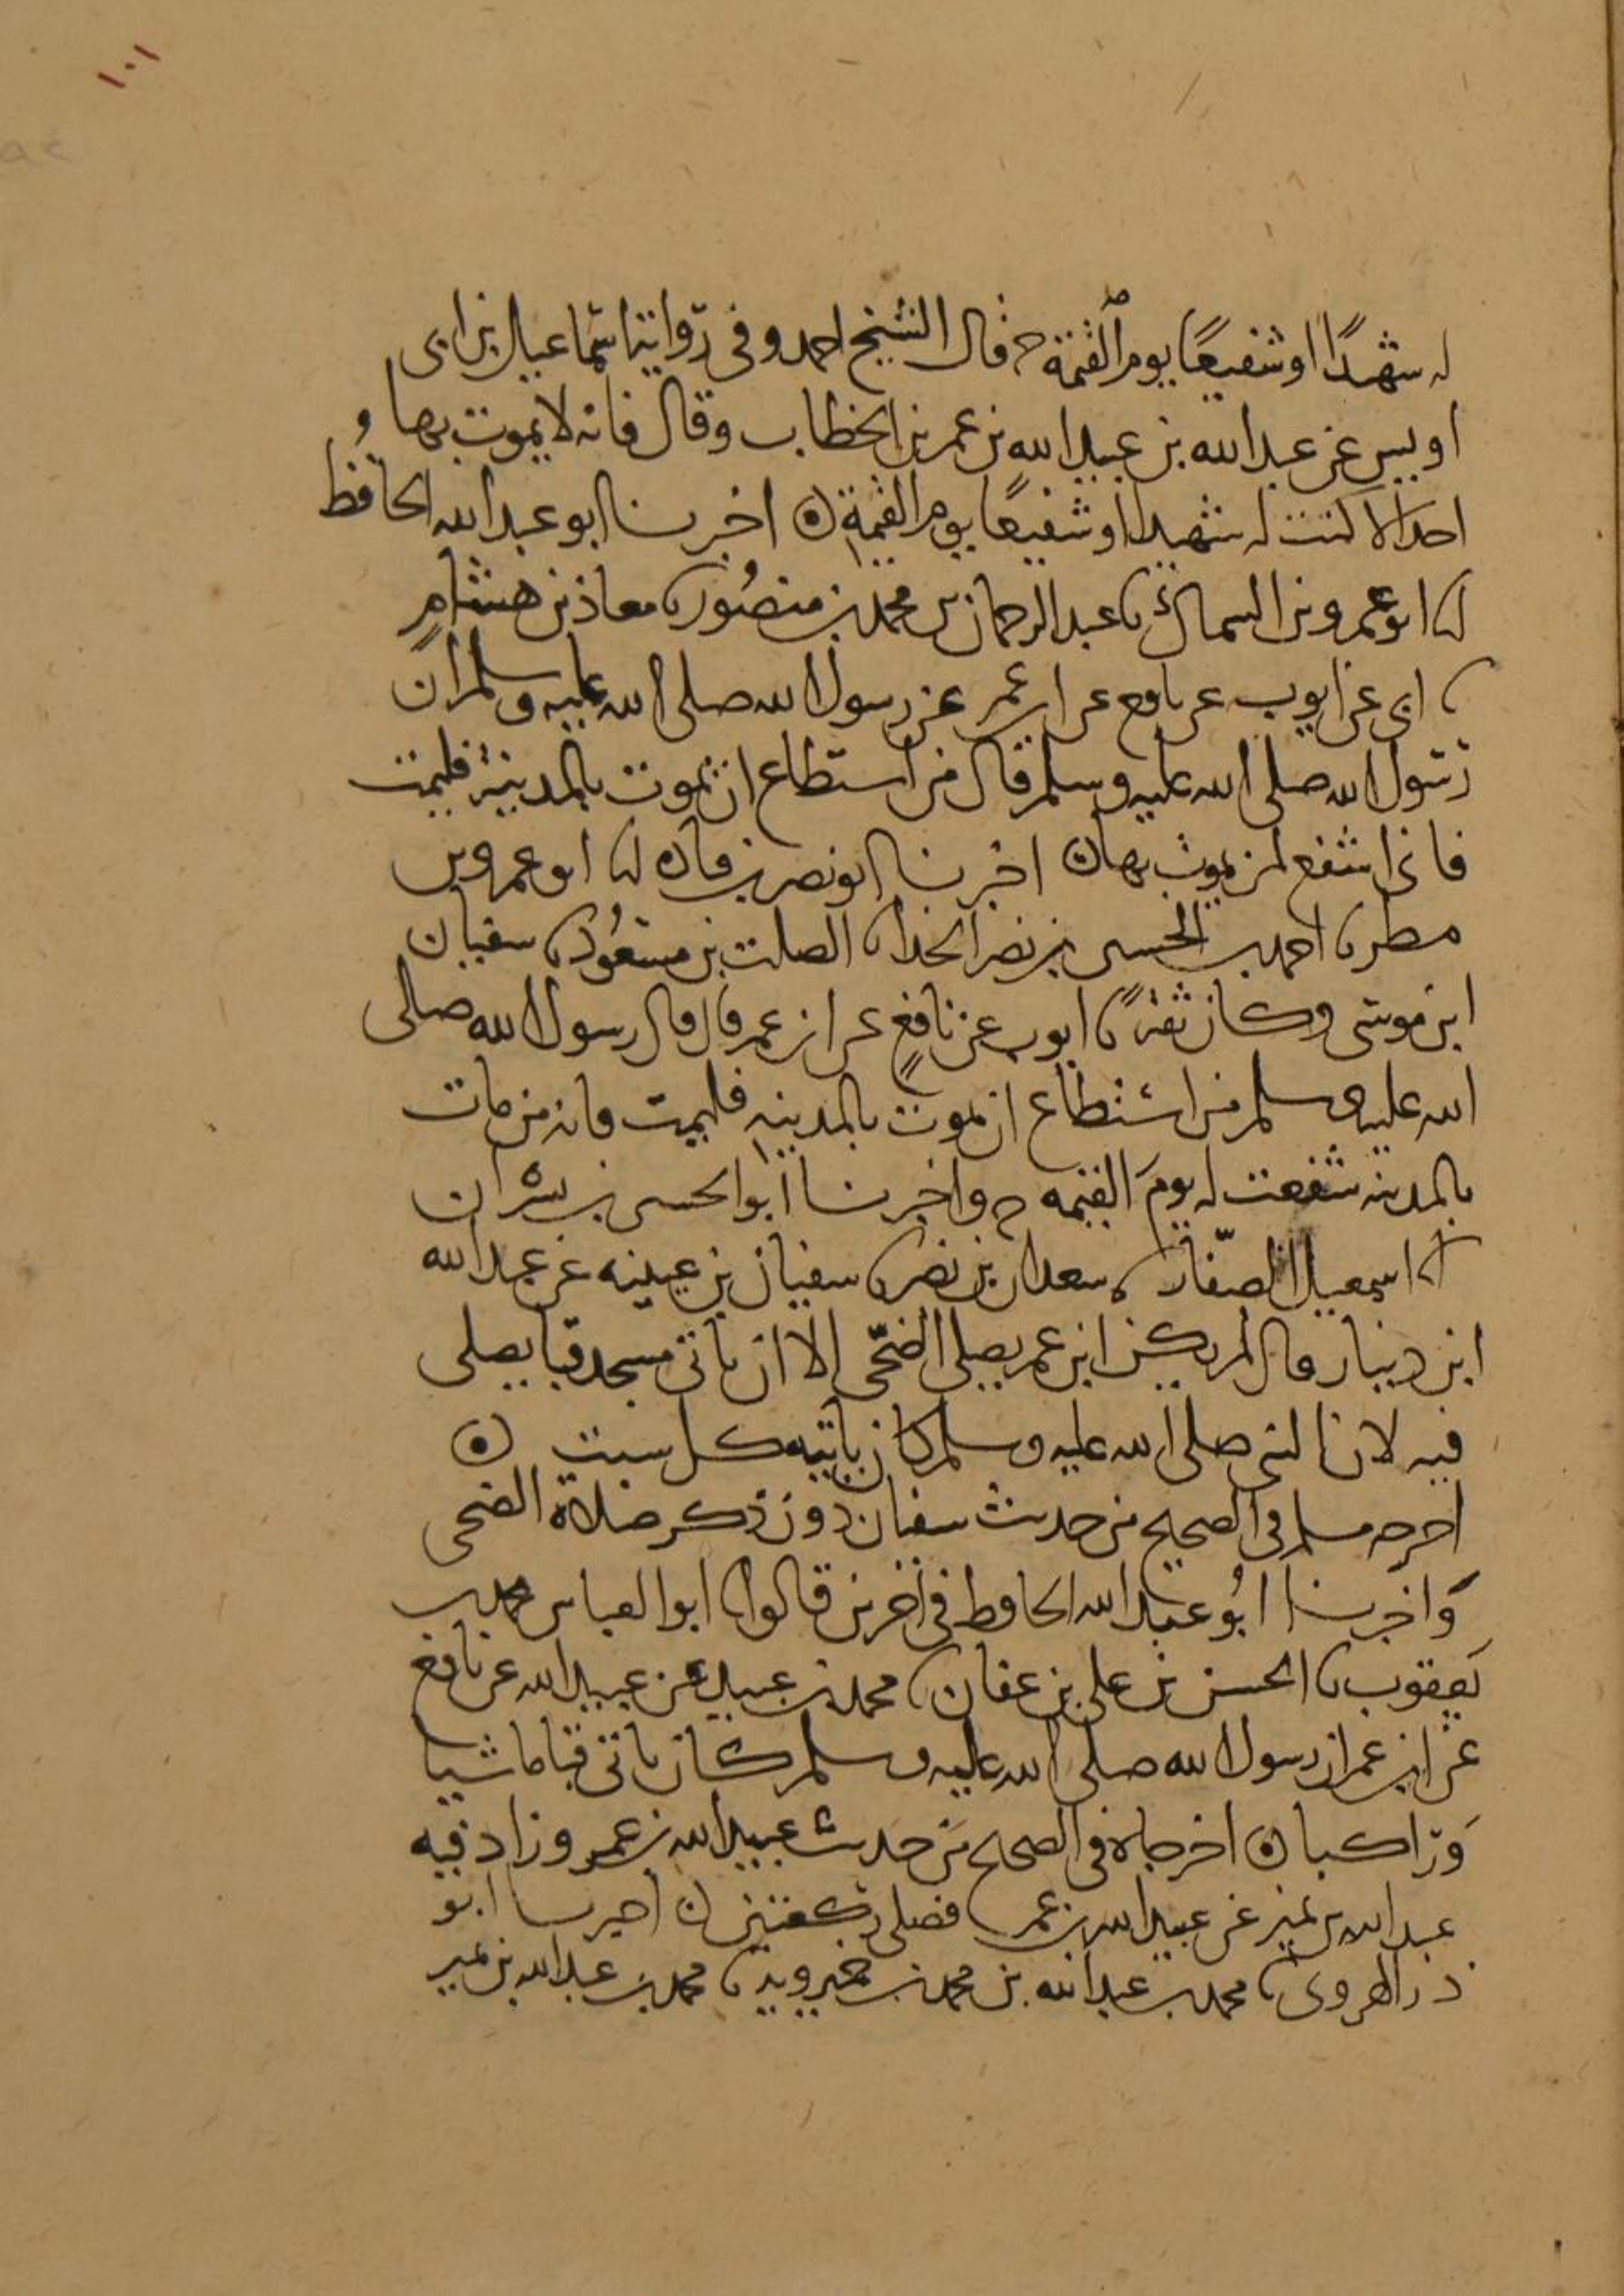 ١٠١
له شهيدًا او شفيعًا يوم القيمة ح قال الشيخ احمد وفي روايتنا اسماعيل بن ابي
اويس عن عبد الله بن عبيد الله بن عمر بن الخطاب وقال فانه لا يموت بها
احدا الا كنت له شهيدا او شفيعا يوم القيمة ن اخبرنا ابو عبد الله الحافظ
انا ابو عمرو بن السماك نا عبد الرحمان بن محمد بن منصور نا معاذ بن هشام
نا ابي عن ايوب عن نافع عن ابن عمر عن رسول الله صلى الله عليه وسلم ان
رسول الله صلى الله عليه وسلم قال من استطاع ان يموت بالمدينة فليمت
فاني اشفع لمن يموت بها ن اخبرنا ابو نصر بن قتادة انا ابو عمرو بن
مطر نا احمد بن الحسين بن نصر الحذا نا الصلت بن مسعود نا سفيان
ابن موسى وكان ثقة نا ايوب عن نافع عن ابن عمر قال قال رسول الله صلى
الله عليه وسلم من استطاع ان يموت بالمدينه فليمت فانه من مات
بالمدينه شفعت له يوم القيمه ح واخبرنا ابو الحسين بن بشران
انا اسمعيل الصفار نا سعدان بن نصر نا سفيان بن عيينه عن عبد الله
ابن دينار قال لم يكن ابن عمر يصلي الضحى الا ان ياتي مسجد قبا يصلي
فيه لان النبي صلى الله عليه وسلم كان ياتيه كل سبت ن
اخرجه مسلم في الصحيح من حديث سفيان دون ذكر صلاة الضحى
واخبرنا ابو عبد الله الحافظ في اخرين قالوا نا ابو العباس محمد بن
يعقوب نا الحسن بن علي بن عفان نا محمد بن عبيد عن عبيد الله عن نافع
عن ابن عمر ان رسول الله صلى الله عليه وسلم كان ياتي قبا ماشيا
وراكبا ن اخرجاه في الصحيح من حديث عبيد الله بن عمر وزاد فيه
عبد الله بن نمير عن عبيد الله بن عمر فصلى ركعتين ن اخبرنا ابو
ذر الهروي نا محمد بن عبد الله بن محمد بن خميرويه نا محمد بن عبد الله بن نمير